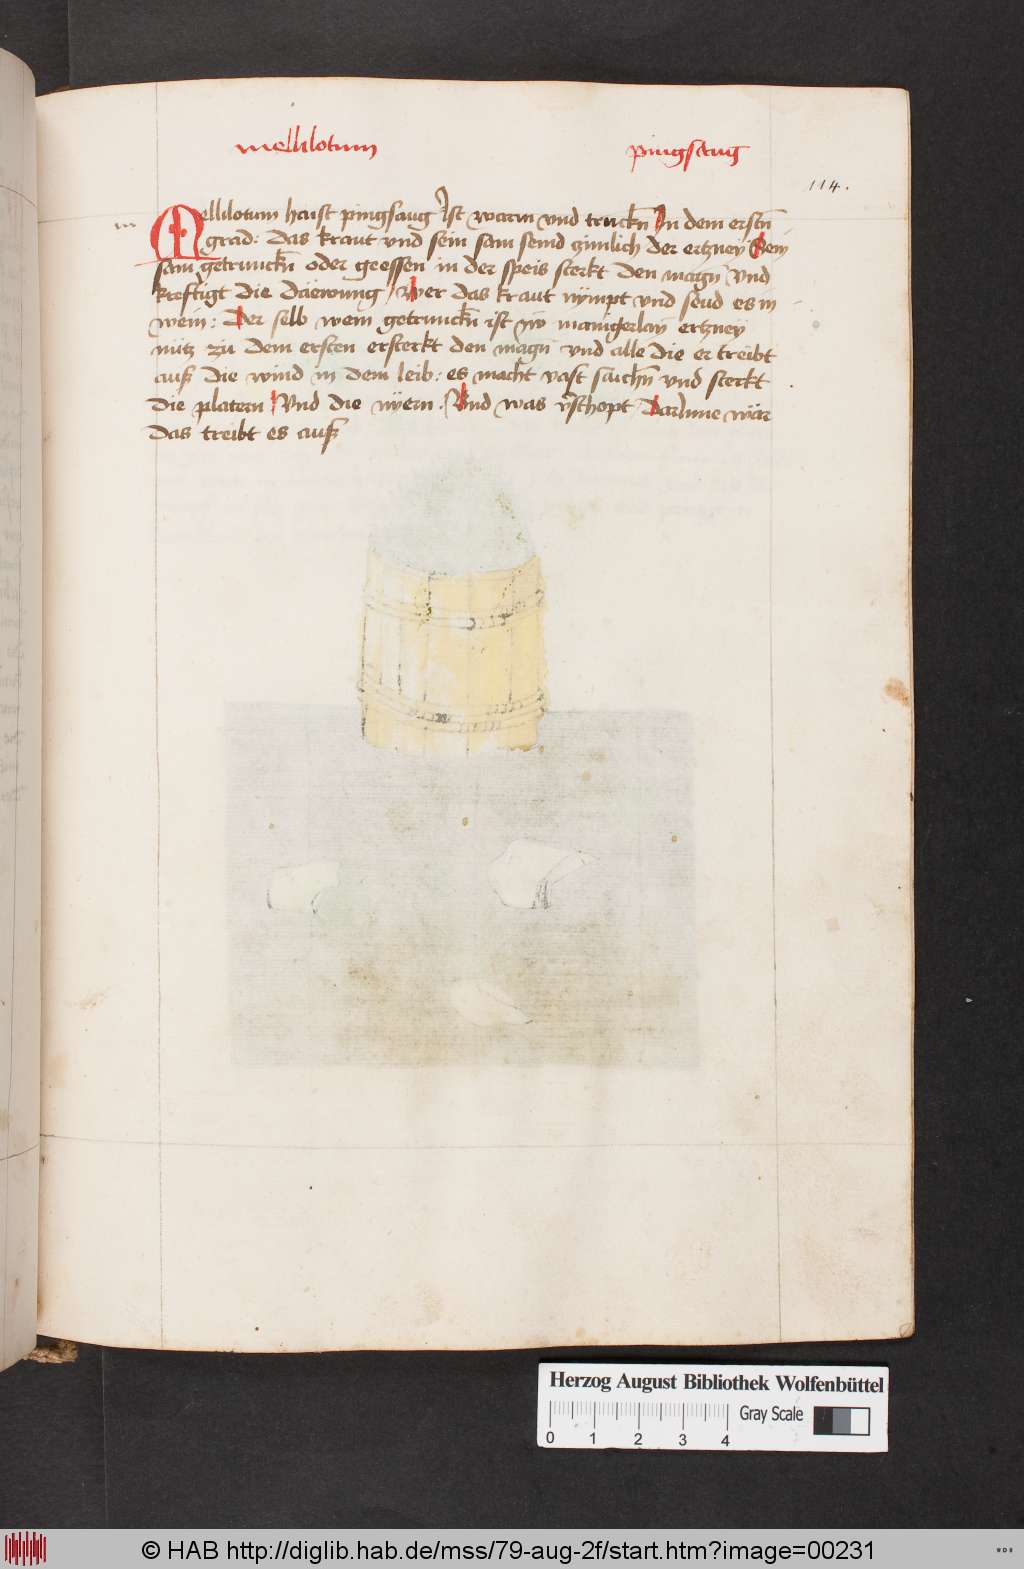 mellilotum pingsaug
114.
m
Mellilotum haist pingsaug Ist warm vnd truckn̄ In dem erstn̄
grad: das kraut vnd sein sam send zimlich der ertzney Sein
sam getrunckn̄ oder geessen in der speis sterkt den magn̄ Vnd
kreftigt die däewung / Wer das kraut nympt vnd seud es in
wein: Der selb wein getrunckn̄ ist zů manigerlay ertzney
nütz zu dem ersten ersterkt den magn̄ vnd alle die er treibt
auß die wind in dem leib: es macht vast saichn̄ vnd sterkt
die platern Vnd die nÿern. Vnd was v̄schopt Darinne wär
das treibt es auß
Herzog August Bibliothek Wolfenbüttel
Gray Scale
0 1 2 3 4
© HAB http://diglib.hab.de/mss/79-aug-2f/start.htm?image=00231